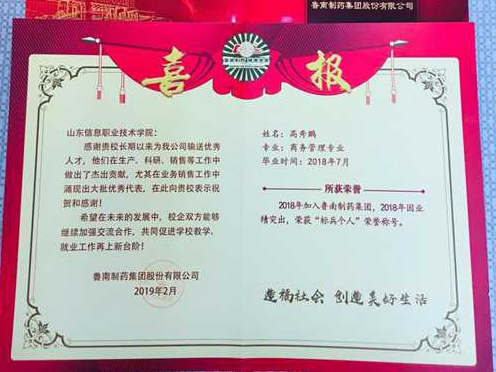 鲁南制药集团股份有限公司
喜报
山东信息职业技术学院：
感谢贵校长期以来为我公司输送优秀
人才，他们在生产、科研、销售等工作中
做出了杰出贡献，尤其在业务销售工作中
涌现出大批优秀代表，在此向贵校表示祝
贺和感谢！
希望在未来的发展中，校企双方能够
继续加强交流合作，共同促进学校教学、
就业工作再上新台阶！
鲁南制药集团股份有限公司
2019年2月
姓名：高秀鹏
专业：商务管理专业
毕业时间：2018年7月
所获荣誉
2018年加入鲁南制药集团，2018年因业
绩突出，荣获“标兵个人”荣誉称号。
造福社会 创造美好生活